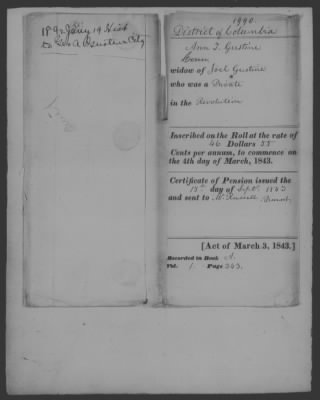 1990.
District of Columbia
Ann I. Gustine
widow of Joel Gustine
who was a Private
in the Revolution
Inscribed on the Roll at the rate of
46 Dollars 55
Cents per annum, to commence on
the 4th day of March, 1843.
Certificate of Pension issued the
18th day of Sept. 1843
and sent to
[Act of March 3, 1843.]
Recorded in Book A.
Vol. 1. Page 363.
Hist
to Geo A City